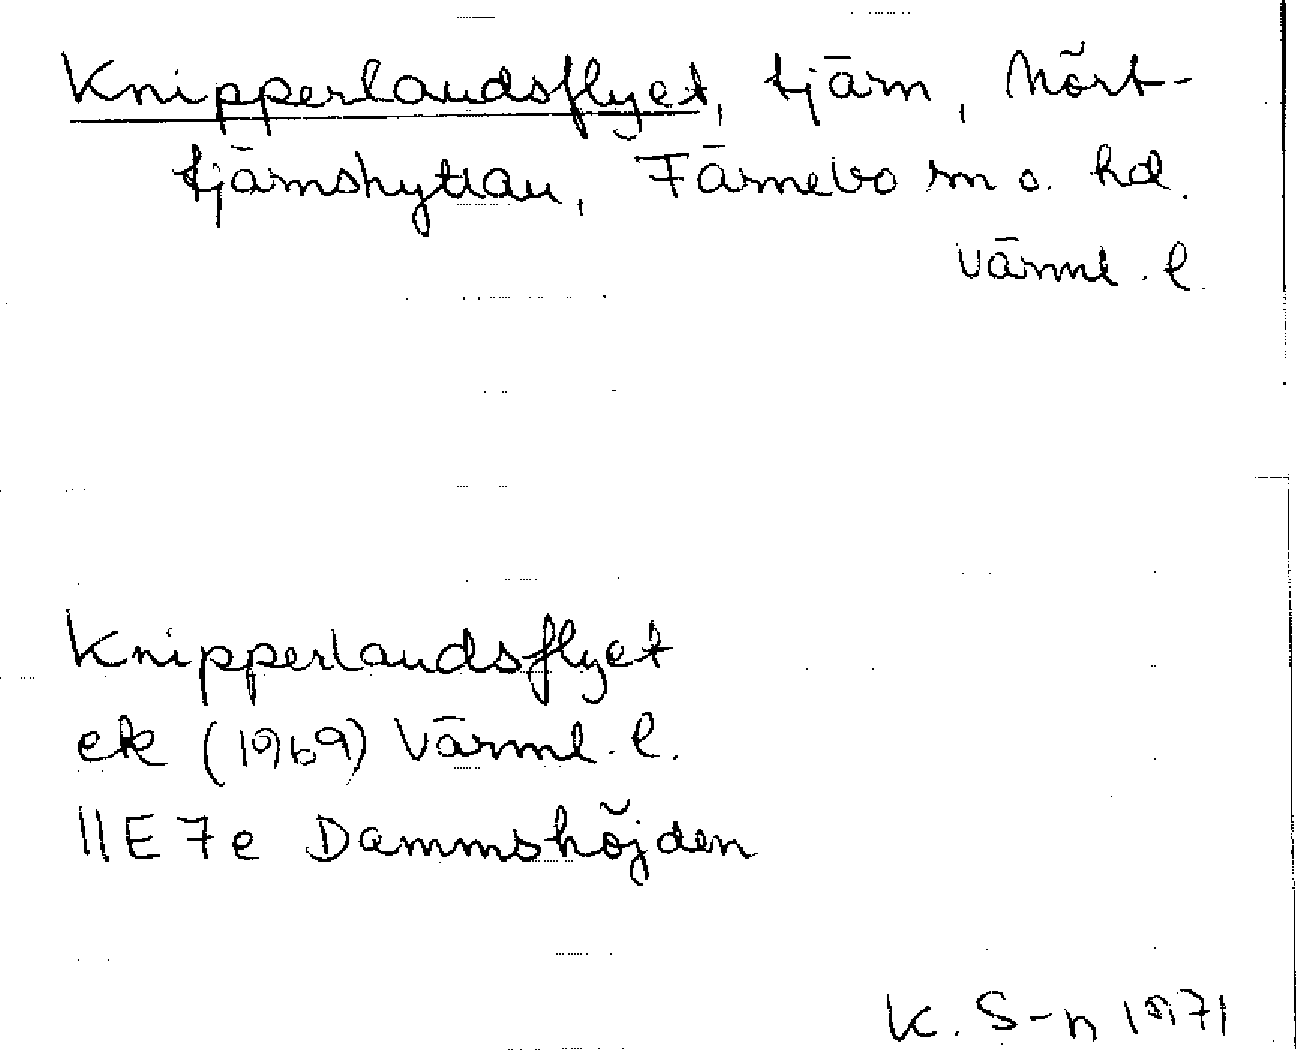 Knipperlandsflyet, tjärn, Mört-
tjärnshyttan, Färnebo sn o. hd.
Värml. l.
Knipperlandsflyet
ek (1969) Värml. l.
11E7e Dammshöjden
K. S-n 1971